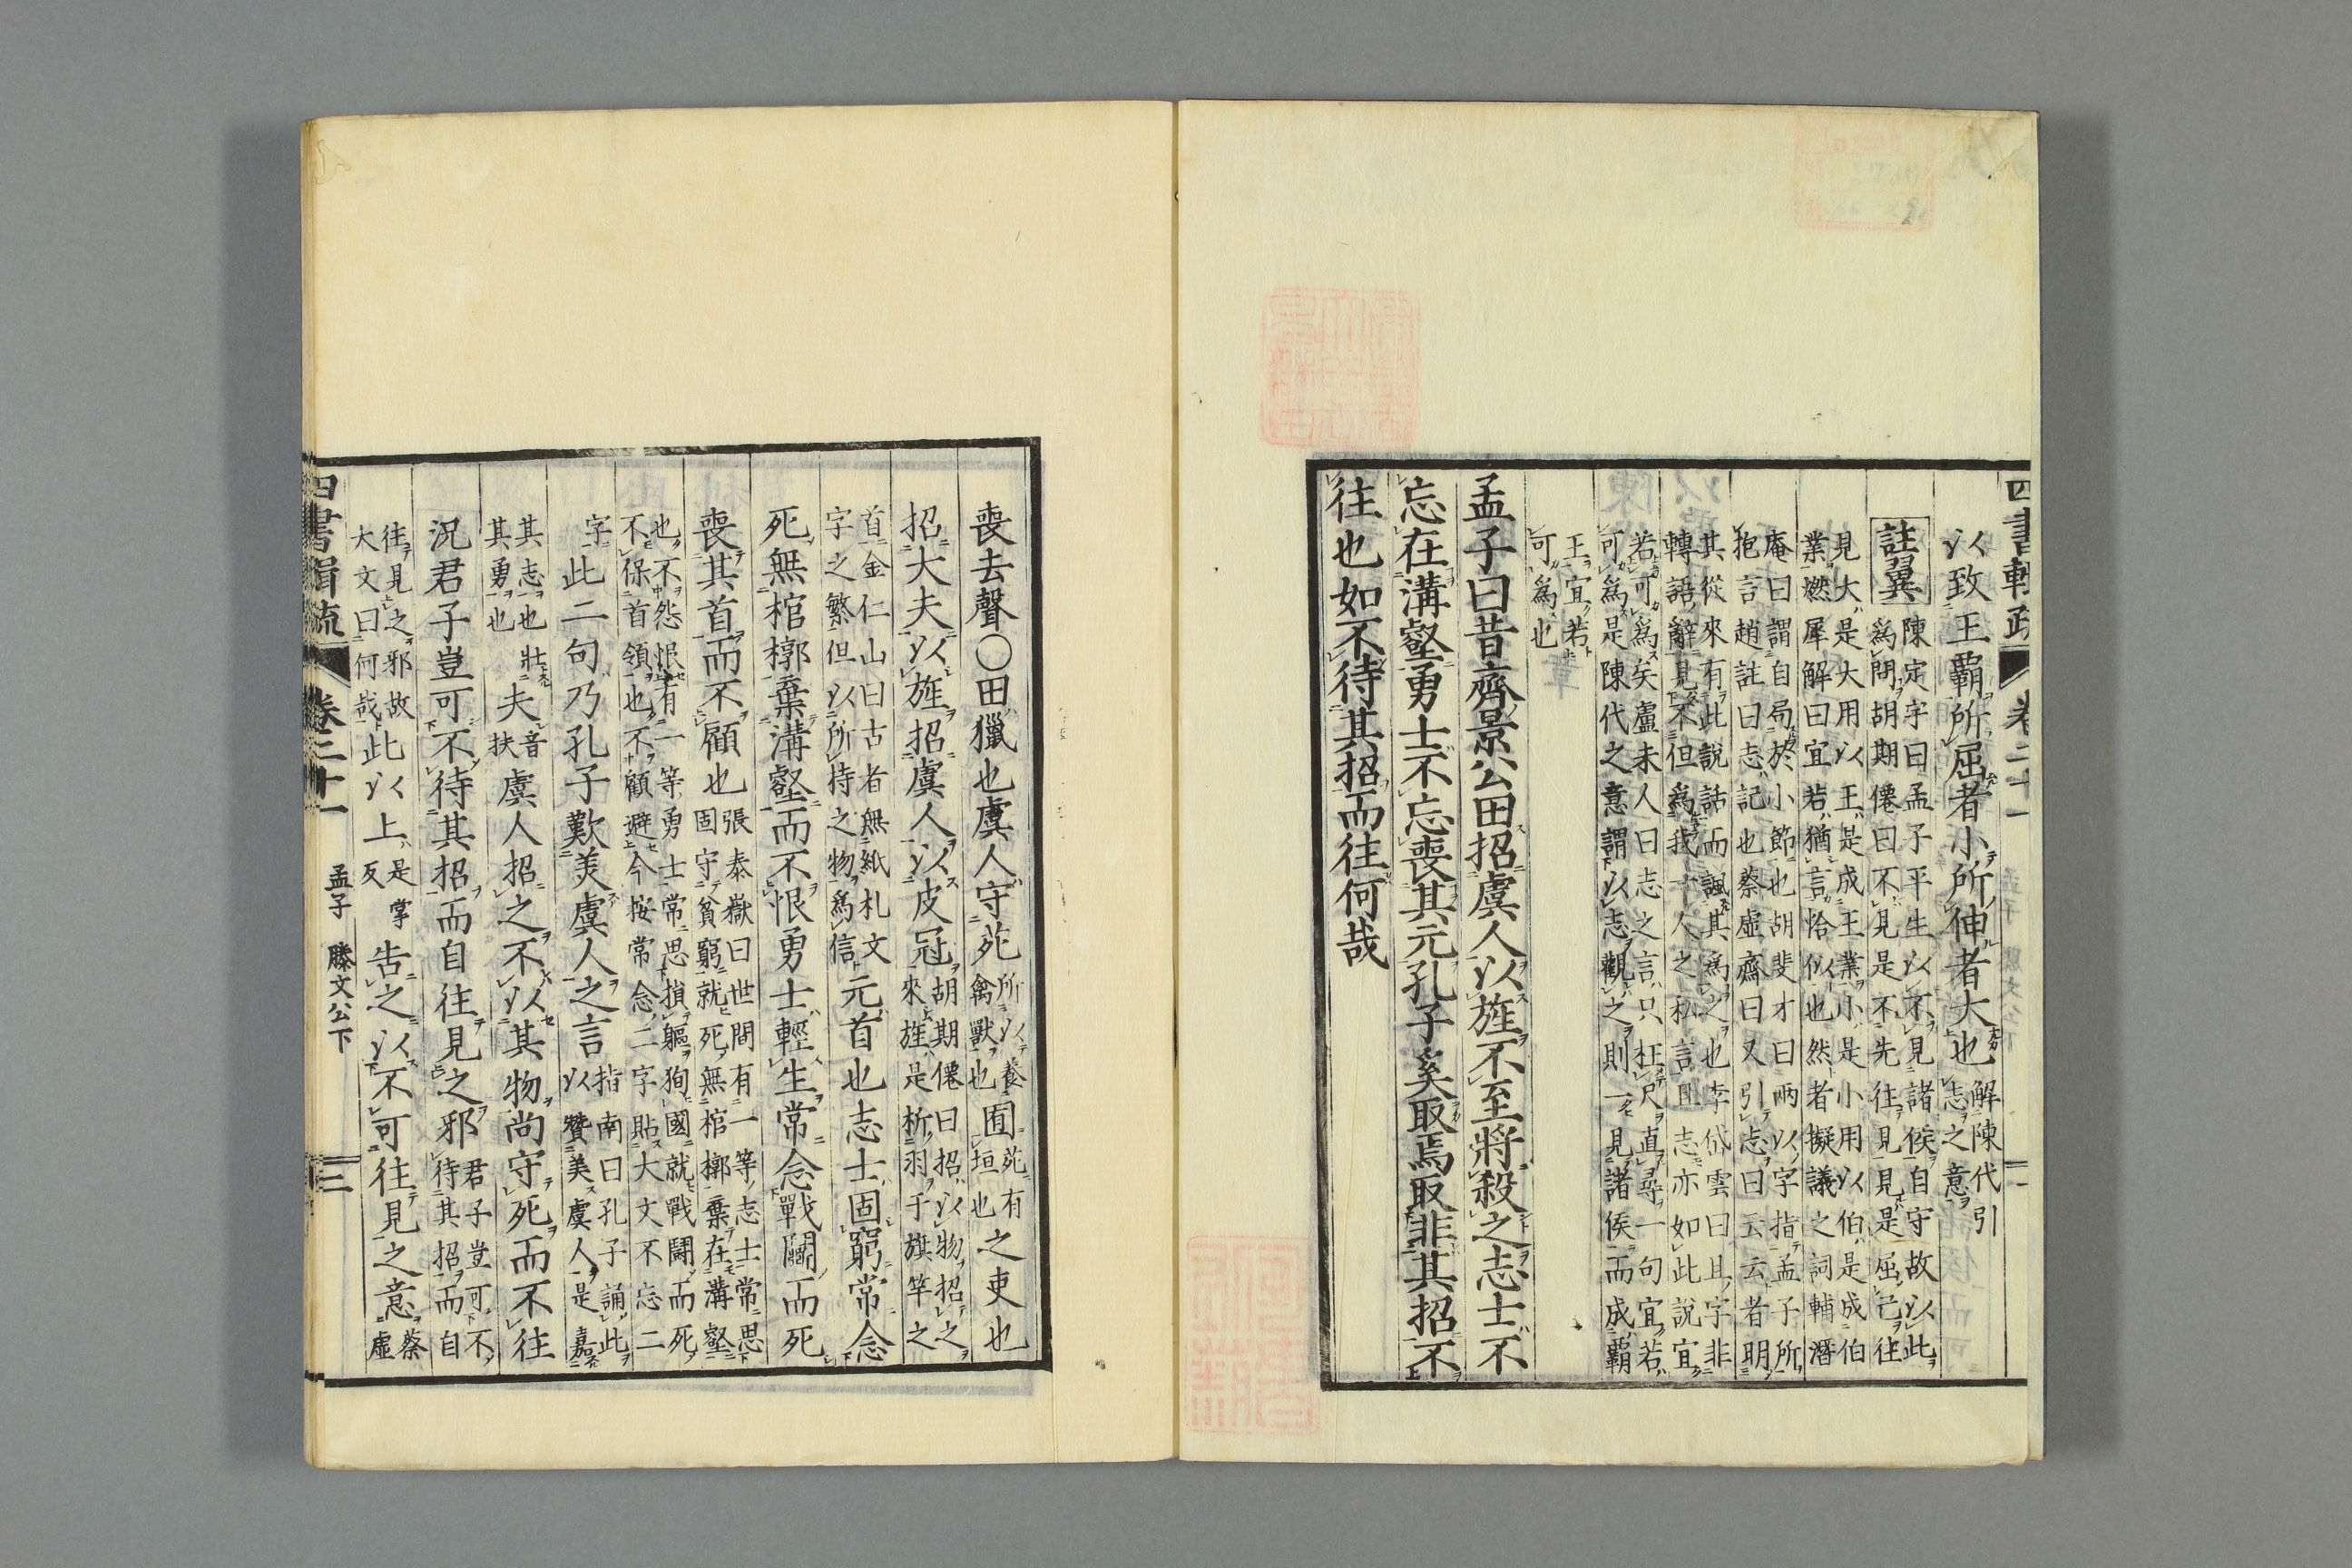 四書輯疏 卷二十一 二
以致王霸所屈者小所伸者大也 解陳代引志之意
註翼 陳定宇曰孟子平生以不見諸侯自守故以此
爲問胡期僊曰不見是不先往見見是屈己往
見大是大用以王是成王業小是小用以伯是成伯
業燃犀解曰宜若猶言恰似也然者擬議之詞輔潛
庵曰謂自局於小節也胡斐才曰兩以字指孟子所
抱言趙註曰志記也蔡虛齋曰又引志曰云云者明
其從來有此說話而諷其爲之也李岱雲曰且字非
轉語辭見不但爲我一人之私言且志亦如此說宜
若可爲矣盧未人曰志之言只枉尺直尋一句宜若
可爲是陳代之意謂以志觀之則一見諸侯而成霸
王宜若
可爲也
孟子曰昔齊景公田招虞人以旌不至將殺之志士不
忘在溝壑勇士不忘喪其元孔子奚取焉取非其招不
往也如不待其招而往何哉
喪去聲○田獵也虞人守苑 所以養禽獸也 囿 苑有垣也 之吏也
招大夫以旌招虞人以皮冠 胡期僊曰招以物招之
來旌是析羽于旗竿之
首金仁山曰古者無紙札文
字之繁但以所持之物爲信 元首也志士固窮常念
死無棺槨棄溝壑而不恨勇士輕生常念戰鬬而死
喪其首而不顧也 張泰嶽曰世間有一等志士常思
固守貧窮就死無棺槨棄在溝壑
也不怨恨有一等勇士常思損軀狥國就戰鬪而死
不保首領也不顧避今按常念二字貼大文不忘二
字 此二句乃孔子歎美虞人之言 指南曰孔子誦此
以贊美虞人是嘉
其志也
其勇也 壯 夫 音扶 虞人招之不以其物尚守死而不往
況君子豈可不待其招而自往見之邪 君子豈可不
待其招而自
往見之邪故
大文曰何哉 此以上 是掌反 告之以不可往見之意 蔡虛
四書輯疏 卷二十一 孟子 滕文公下 三